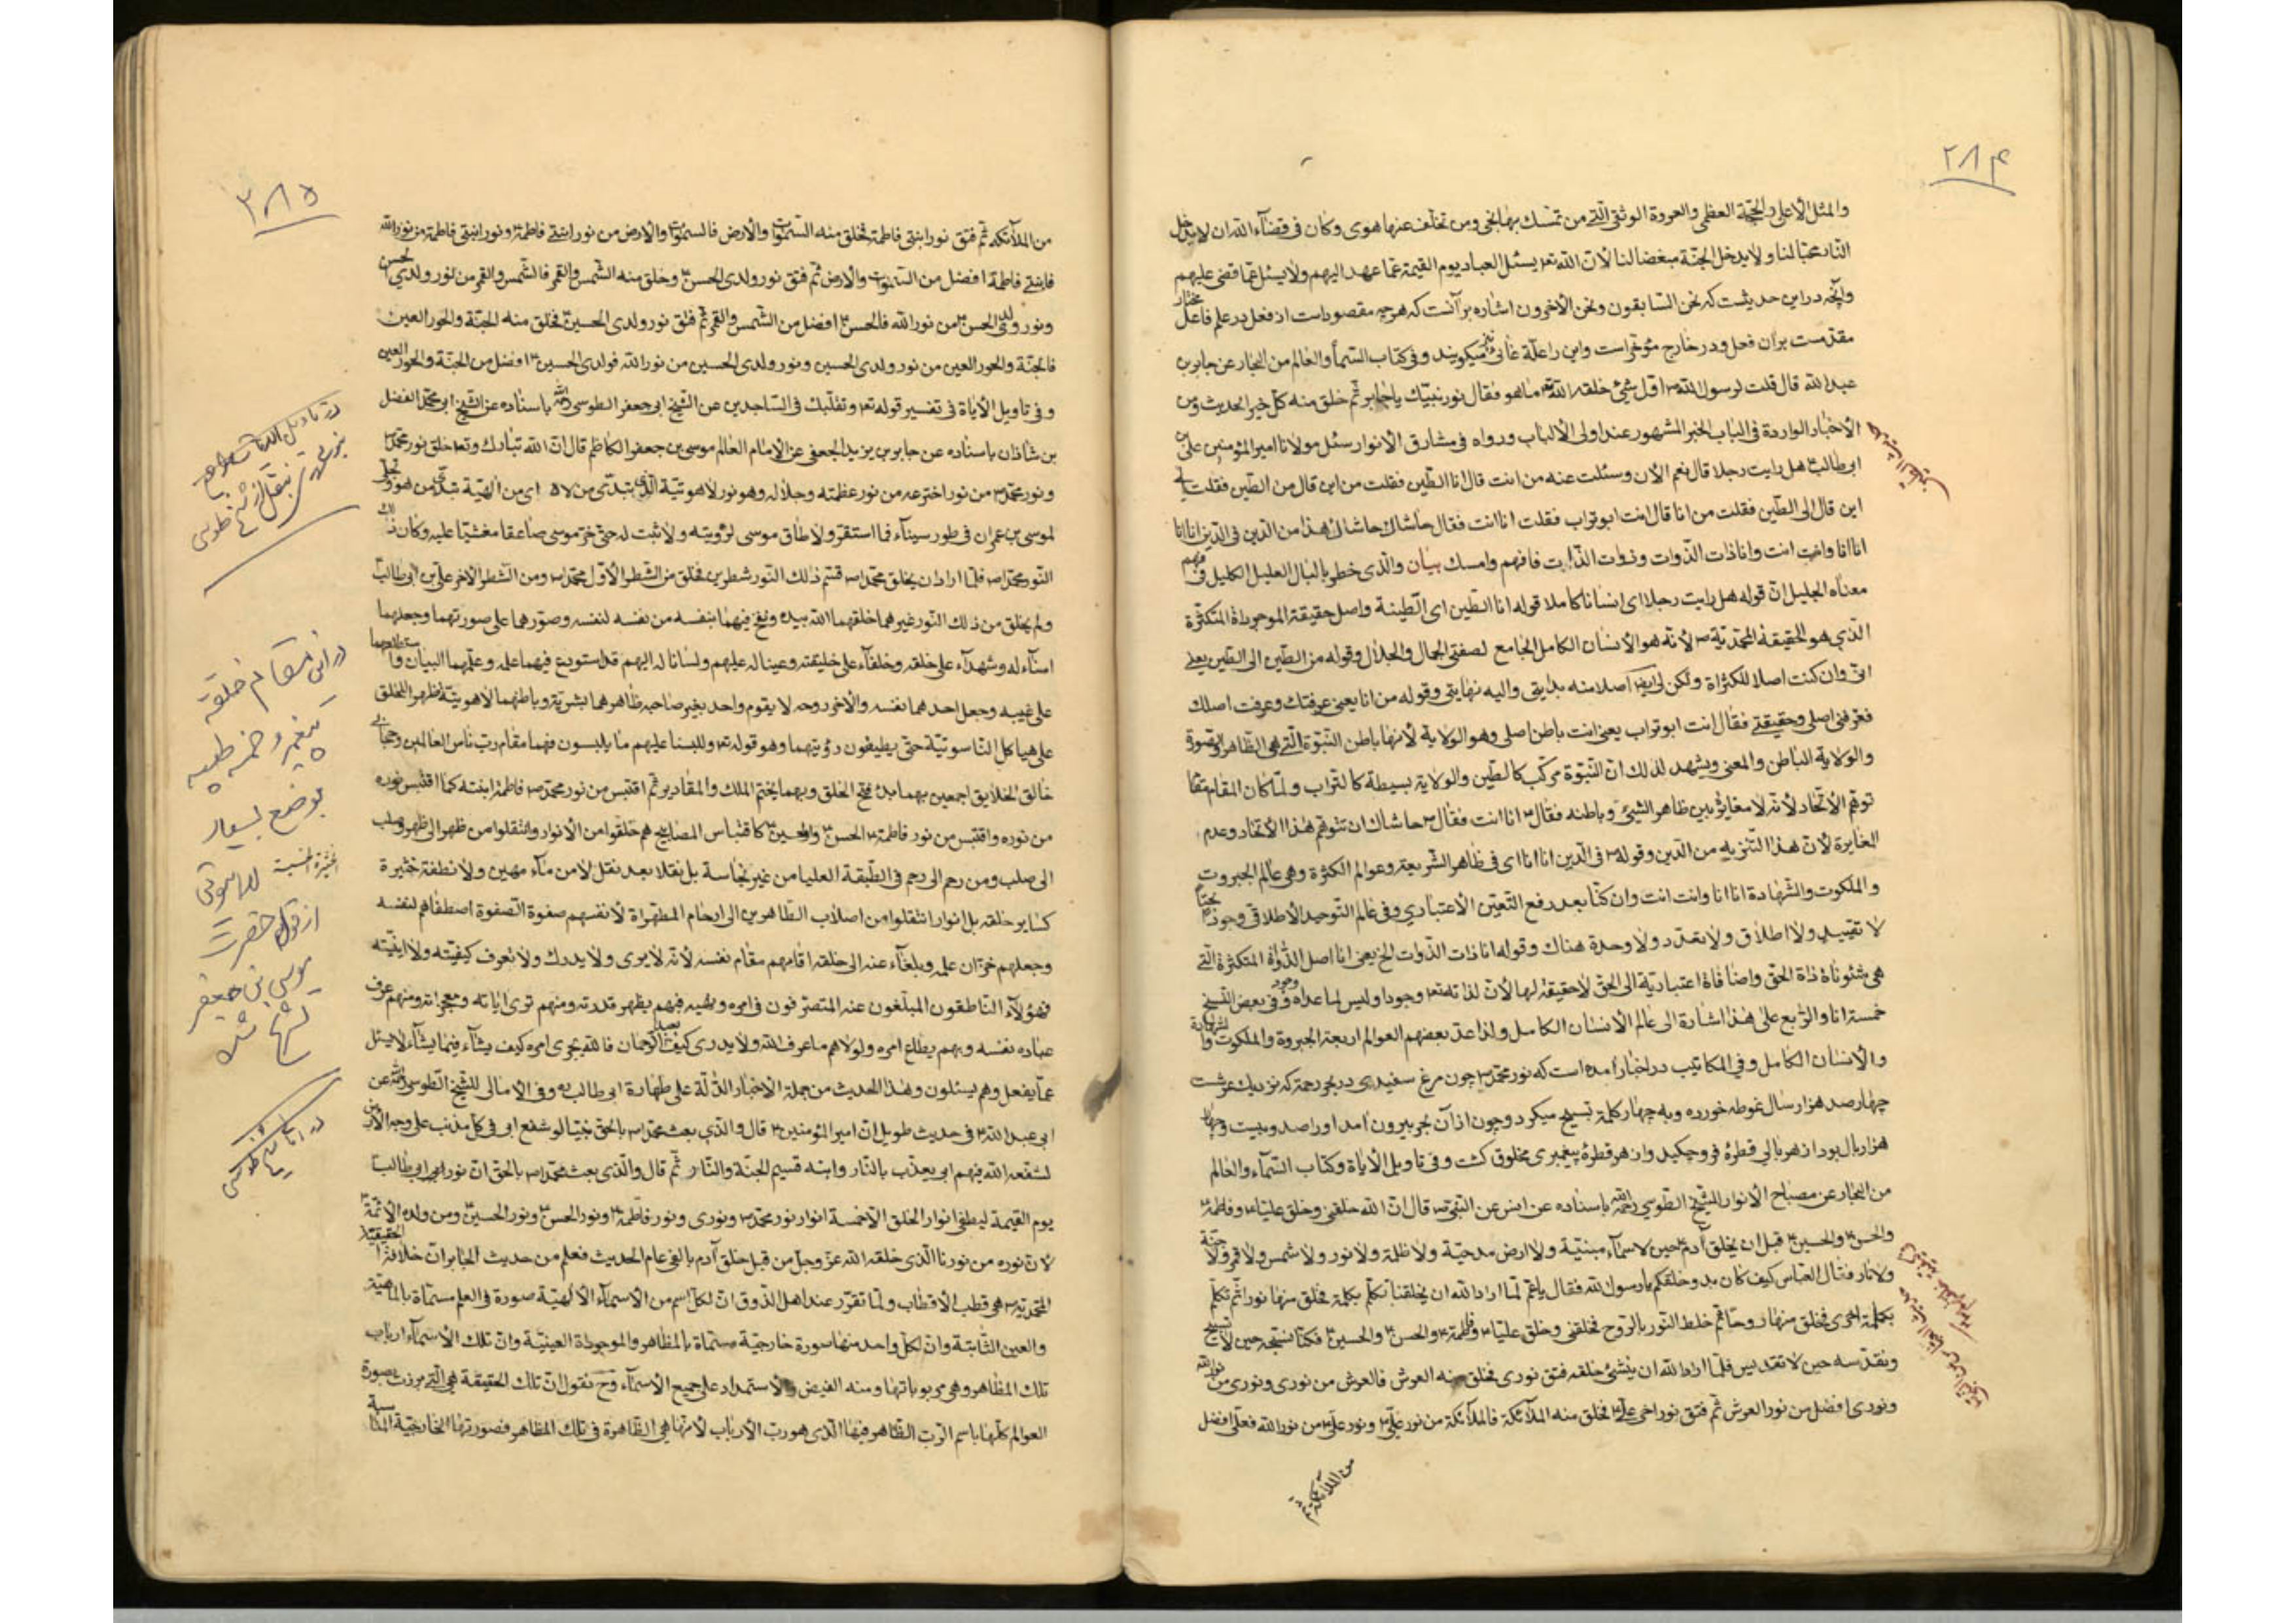 ۲۸۴
والمثل الاعلی والحجّة العظمی والعروة الوثقی الّتی من تمسّك بها نجی ومن تخلّف عنها هوی وکان فی قضاء الله ان لا یدخل
النّار محبّا لنا ولا یدخل الجنّة مبغضا لنا لانّ الله تع یسئل العباد یوم القیمة عمّا عهد الیهم ولا یسئل عمّا قضی علیهم
وآنچه در این حدیثست که نحن السّابقون ونحن الآخرون اشاره بر آنست که هر چه مقصود است از فعل در علم فاعل مختار
مقدّمست بر آن فعل ودر خارج مؤخّر است واین را علّة غائی نیز میکویند وفی کتاب السّمآ والعالم من البحار عن جابر بن
عبد الله قال قلت لرسول الله ص اوّل شیئ خلقه الله تع ما هو فقال نور نبیّك یا جابر ثمّ خلق منه کلّ خیر الحدیث ومن
الاخبار الواردة فی الباب الخبر المشهور عند اولی الالباب ورواه فی مشارق الانوار سئل مولانا امیر المؤمنین علیّ بن
ابی طالب ع هل رایت رجلا قال نعم الان وسئلت عنه من انت قال انا الطّین فقلت من این قال من الطّین فقلت الی
این قال الی الطّین فقلت من انا قال انت ابو تراب فقلت انا انت فقال حاشاك حاشاك هذا من الدّین فی الدّین انا انا
انا انا وانت انت وانا ذات الذّوات وذوات الذّات فافهم وامسك بیان والّذی خطر بالبال العلیل الکلیل فی فهم
معناه الجلیل انّ قوله هل رایت رجلا ای انسانا کاملا قوله انا الطّین ای الطّینة واصل حقیقة الموجوداة المتکثّرة
الّذی هو الحقیقة المحمّدیّة ص لانّه هو الانسان الکامل الجامع لصفتی الجمال والجلال وقوله من الطّین الی الطّین یعنی
انّی وان کنت اصلا للکثراة ولکن لی ایضا اصلا منه بدایتی والیه نهایتی وقوله من انا یعنی عرفتك وعرفت اصلك
فعرّفنی اصلی وحقیقتی فقال انت ابو تراب یعنی انت باطن اصلی وهو الولایة لانها باطن النّبوّة الّتی هی الظّاهر والصّورة
والولایة الباطن والمعنی ویشهد لذلك انّ النّبوّة مرکّب کالطّین والولایة بسیطة کالتّراب ولمّا کان المقام مقام
توهّم الاتّحاد لانّه لا مغایرة بین ظاهر الشیئ وباطنه فقال ع انا انت فقال ع حاشاك ان تتوهّم هذا الاتحاد وعدم
المغایرة لانّ هذا التنزیه من الدّین وقوله ع فی الدّین انا انا ای فی ظاهر الشّریعة وعوالم الکثرة وهی عالم الجبروت
والملکوت والشّهادة انا انا وانت انت وان کنّا بعد رفع التّعیّن الاعتباری وفی عالم التّوحید الاطلاقی وجود
لا تقیید ولا اطلاق ولا تعدّد ولا وحدة هناك وقوله انا ذات الذّوات الخ یعنی انا اصل الذّواة المتکثّرة الّتی
هی شئوناة ذاة الحقّ واضافاة اعتباریّة الی الحقّ لا حقیقة لها لانّ لذاته تع وجودا ولیس لما عداه وجود وفی بعض النّسخ
خمسة انا والرّابع علی هذا اشارة الی عالم الانسان الکامل ولذا عدّ بعضهم العوالم اربعة الجبروة والملکوت والشّهادة
والانسان الکامل وفی المکاتیب در اخبار آمده است که نور محمّد ص چون مرغ سفیدی در بحر رحمة که نزدیك عرشست
چهار صد هزار سال غوطه خورده وبه چهار کلمه تسبیح میکرد وچون از آن بحر بیرون آمد او را صد وبیست وچهار
هزار بال بود از هر بالی قطرهٔ فرو چکید واز هر قطرهٔ پیغمبری مخلوق کشت وفی تاویل الایاة وکتاب السّماء والعالم
من البحار عن مصباح الانوار للشّیخ الطوسی رحمه الله باسناده عن انس عن النبی ص قال انّ الله خلقنی وخلق علیّا ع وفاطمة ع
والحسن ع والحسین ع قبل ان یخلق آدم ع حین لا سماء مبنیّة ولا ارض مدحیّة ولا ظلمة ولا نور ولا شمس ولا قمر ولا جنّة
ولا نار فقال العبّاس کیف کان بدو خلقکم یا رسول الله فقال یا عمّ لمّا اراد الله ان یخلقنا تکلّم بکلمة فخلق منها نورا ثمّ تکلّم
بکلمة اخری فخلق منها روحا ثمّ خلط النّور بالرّوح فخلقنی وخلق علیّا ع وفاطمة ع والحسن ع والحسین ع فکنّا نسبّحه حین لا تسبیح
ونقدّسه حین لا تقدیس فلمّا اراد الله ان ینشئ خلقه فتق نوری فخلق منه العرش فالعرش من نوری ونوری من نور الله
ونوری افضل من نور العرش ثمّ فتق نور اخی علیّ ع فخلق منه الملائکة فالملائکة من نور علیّ ع ونور علیّ ع من نور الله فعلیّ افضل
من الملائکة ثمّ
۳۸۵
من الملائکه ثمّ فتق نور ابنتی فاطمة فخلق منه السّموات والارض فالسموات والارض من نور ابنتی فاطمة ع ونور ابنتی فاطمة من نور الله
فابنتی فاطمة افضل من السّموات والارض ثمّ فتق نور ولدی الحسن ع وخلق منه الشّمس والقمر فالشّمس والقمر من نور ولدی الحسن
ونور ولدی الحسن ع من نور الله فالحسن ع افضل من الشّمس والقمر ثمّ فتق نور ولدی الحسین ع فخلق منه الجنّة والحور العین
فالجنّة والحور العین من نور ولدی الحسین ونور ولدی الحسین من نور الله فولدی الحسین ع افضل من الجنّة والحور العین
وفی تاویل الایاة فی تفسیر قوله تع وتقلّبك فی السّاجدین عن الشّیخ ابی جعفر الطوسی رحمه الله باسناده عن الشّیخ ابی محمّد الفضل
بن شاذان باسناده عن جابر بن یزید الجعفی عن الامام العالم موسی بن جعفر الکاظم قال انّ الله تبارك وتع خلق نور محمّد ص
ونور محمّد ص من نور اخترعه من نور عظمته وجلاله وهو نور لاهوتیّة الّذی تبدّی من لاه ای من الهیّة تبدّی من هو وتجلّی
لموسی بن عمران فی طور سیناء فما استقرّ ولا طاق موسی لرؤیته ولا ثبت له حتّی خرّ موسی صاعقا مغشیّا علیه وکان ذلك
النّور محمّدا ص فلمّا اراد ان یخلق محمّدا ص قسّم ذلك النّور شطرین فخلق من الشّطر الاوّل محمّد ص ومن الشّطر الاخر علیّ بن ابی طالب
ولم یخلق من ذلك النّور غیرهما خلقهما الله بیده ونفخ فیهما بنفسه من نفسه لنفسه وصوّرهما علی صورتهما وجعلهما
امناء له وشهداء علی خلقه وخلفآء علی خلیقته وعینا له علیهم ولسانا له الیهم قد استودع فیهما علمه وعلّمهما البیان واستطلعهما
علی غیبه وجعل احدهما نفسه والآخر روحه لا یقوم واحد بغیر صاحبه ظاهرهما بشریّة وباطنهما لاهوتیّة ظهرا للخلق
علی هیاکل النّاسوتیّة حتّی یطیقون رؤیتهما وهو قوله تع وللبسنا علیهم ما یلبسون فهما مقام ربّ النّاس العالمین وحجابی
خالق الخلایق اجمعین بهما بدء فتح الخلق وبهما یختم الملك والمقادیر ثمّ اقتبس من نور محمّد ص فاطمة ابنته کما اقتبس نوره
من نوره واقتبس من نور فاطمة ع الحسن ع والحسین ع کاقتباس المصابیح هم خلقوا من الانوار وانتقلوا من ظهر الی ظهر وصلب
الی صلب ومن رحم الی رحم فی الطّبقة العلیا من غیر نجاسة بل نقلا بعد نقل لا من مآء مهین ولا نطفة خثیرة
کسایر خلقه بل انوار انتقلوا من اصلاب الطّاهرین الی ارحام المطهّراة لانّهم صفوة الصّفوة اصطفاهم لنفسه
وجعلهم خزّان علمه وبلغآء عنه الی خلقه اقامهم مقام نفسه لانّه لا یری ولا یدرك ولا تعرف کیفیّته ولا اینیّته
فهؤلآء النّاطقون المبلّغون عنه المتصرّفون فی امره ونهیه فبهم یظهر قدرته ومنهم تری ایاته ومعجزاته وبهم عرّف
عباده نفسه وبهم یطاع امره ولولاهم ما عرف الله ولا یدری کیف یعبد الرّحمان فالله یجری امره کیف یشآء فیما یشآء لا یسئل
عمّا یفعل وهم یسئلون وهذا الحدیث من جملة الاخبار الدّالّة علی طهارة ابی طالب به وفی الامالی للشّیخ الطوسی رحمه الله عن
ابی عبد الله ع فی حدیث طویل انّ امیر المؤمنین ع قال والّذی بعث محمّدا ص بالحقّ نبیّا لو شفع ابی فی کلّ مذنب علی وجه الارض
لشفّعه الله فیهم ابی یعذّب بالنّار وابنه قسیم الجنّة والنّار ثمّ قال والّذی بعث محمّدا ص بالحقّ انّ نور ابی ابی طالب
یوم القیمة لیطفئ انوار الخلق الّا خمسة انوار نور محمّد ص ونوری ونور فاطمة ع ونور الحسن ع ونور الحسین ع ومن ولده الائمّة ع
لانّ نوره من نورنا الّذی خلقه الله عزّ وجلّ من قبل خلق آدم بالفی عام الحدیث فعلم من حدیث الجابر انّ الحقیقة
المحمّدیّة ص هی قطب الاقطاب ولمّا تقرّر عند اهل الذّوق انّ لکلّ اسم من الاسمآء الالهیّة صورة فی العلم مسمّاة بالماهیّة
والعین الثّابتة وانّ لکلّ واحد منها صورة خارجیّة مسمّاة بالمظاهر والموجوداة العینیّة وانّ تلك الاسمآء ارباب
تلك المظاهر وهی مربوباتها ومنه الفیض والاستمداد علی جمیع الاسمآء وح نقول انّ تلك الحقیقة هی الّتی برزت بصورة
العوالم کلّها باسم الرّبّ الظّاهر فیها الّذی هو ربّ الارباب لانّها هی الظّاهرة فی تلك المظاهر فصورتها الخارجیّة المناسبة
در این مقام خلقة
پیغمبر و خمسه طیبه
بوضع بسیار
لاهوتی
از قول حضرت
موسی بن جعفر